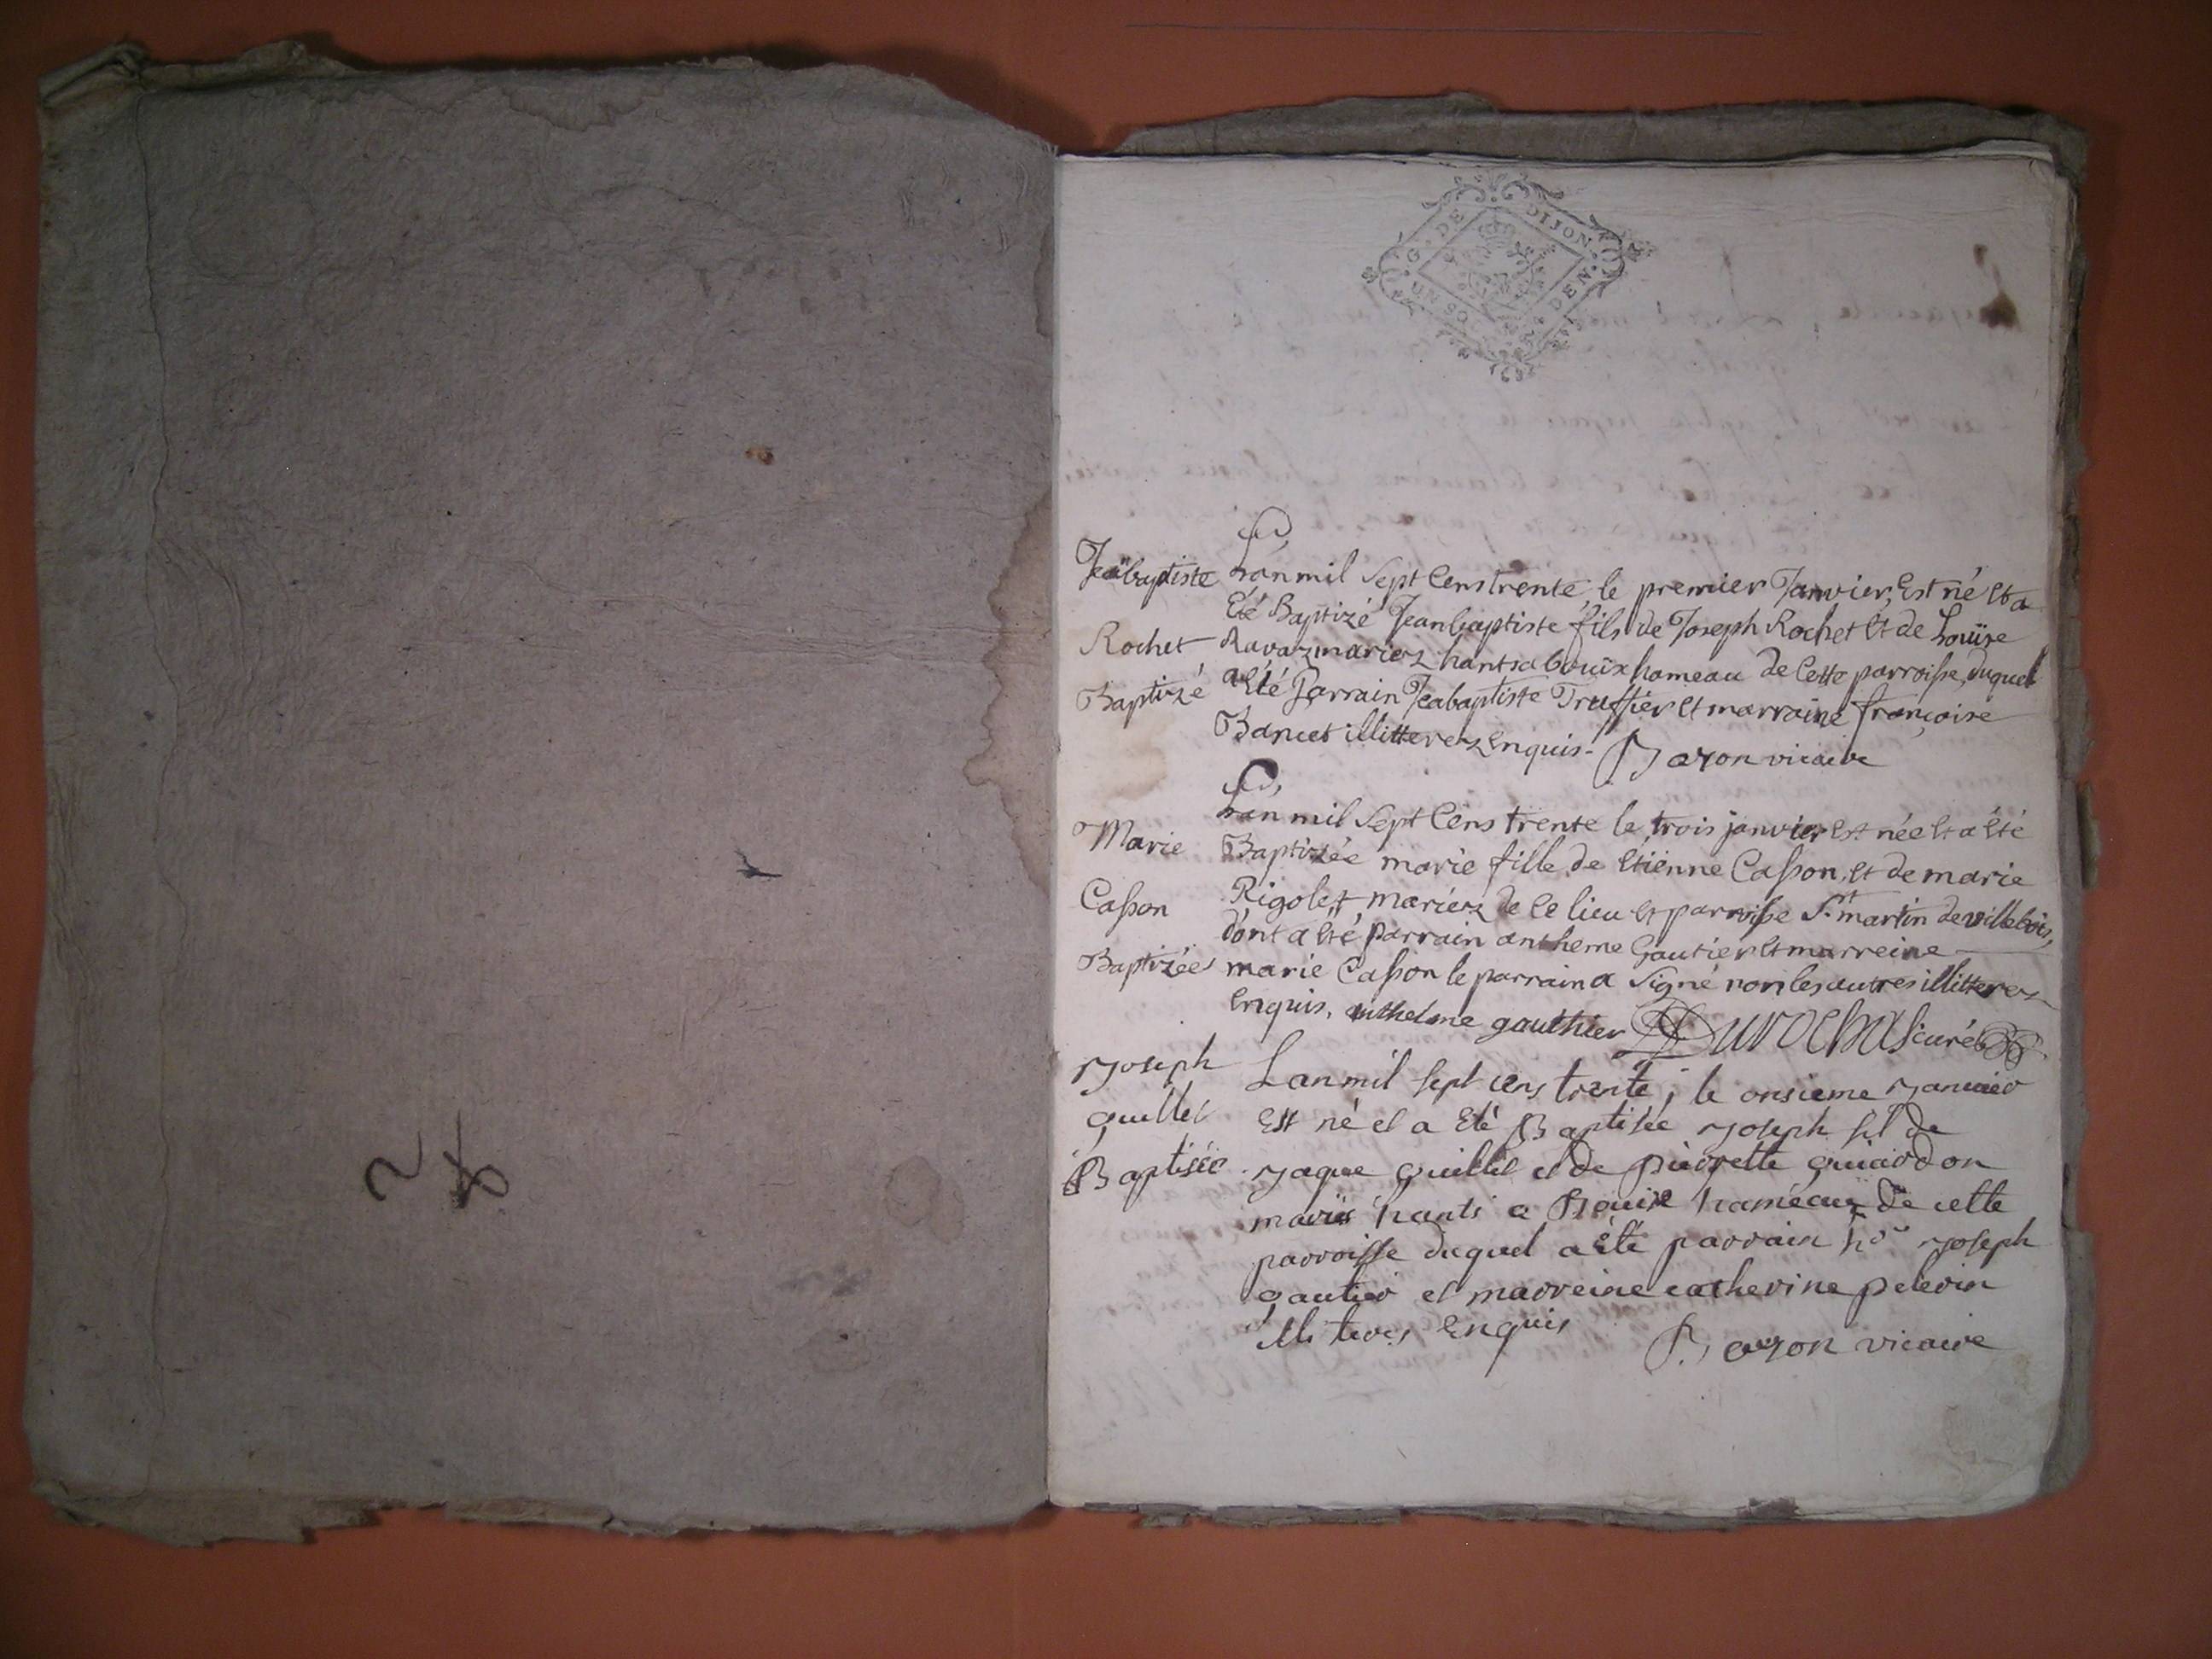 G. DE DIJON
UN SO DEN.
Jeãbaptiste
Rochet
Baptizé
Lan mil Sept Cens trente, le premier Janvier, Est né Et a
Eté Baptizé Jeanbaptiste fils de Joseph Rochet Et de Louïse
Ravaz mariez hants a Bouïx hameau de Cette parroisse, duquel
a Eté Parrain Jeabaptiste Truffier Et marraine françoise
Bancet illitterez Enquis. Bozon vicaire
Marie
Casson
Baptizée
Lan mil Sept Cens trente le trois janvier Est née Et a Eté
Baptizée marie fille de Etiënne Casson, Et de marie
Rigolet mariez de Ce lieu Et parroisse St. martin de villebois,
dont a Eté parrain antheme Gautier Et marreine
marie Casson le parrain a Signé non les autres illitterez
Enquis. anthelme gauthier Durochat curé
Joseph
guillet
Baptisée
Lan mil sept cens trente, le onsieme Janvier
Est né et a Eté Baptisée Joseph fil de
Jaque guillet et de pierrette guiardon
mariés hants a Bouix haméaux de cette
parroisse duquel a Eté parrain Joseph
gautier et marreine catherine pelerin
illiteres Enquis Bozon vicaire